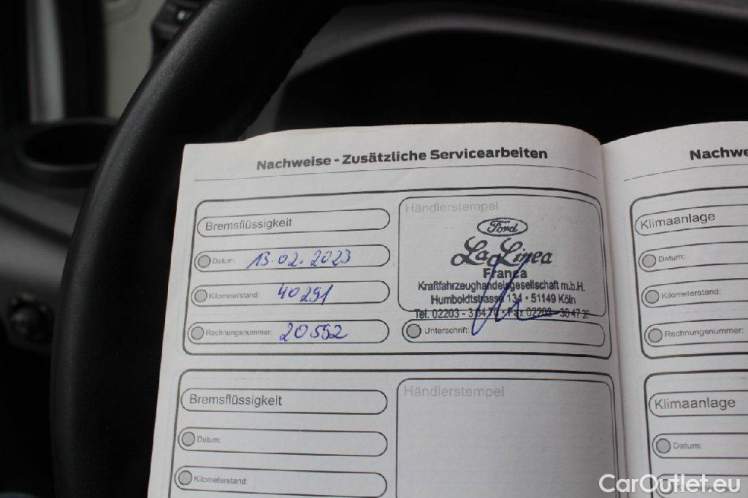 Nachweise - Zusätzliche Servicearbeiten
Bremsflüssigkeit
Datum: 13.02.2023
Kilometerstand: 40291
Rechnungsnummer: 20552
Händlerstempel
Ford
La Linea
Franca
Kraftfahrzeughandelsgesellschaft m.b.H.
Humboldtstrasse 134 • 51149 Köln
Tel. 02203 - • Fax 02203 -
Unterschrift:
Bremsflüssigkeit
Datum:
Kilometerstand:
Händlerstempel
Nachwe
Klimaanlage
Datum:
Kilometerstand:
Rechnungsnummer:
Klimaanlage
Datum:
CarOutlet.eu